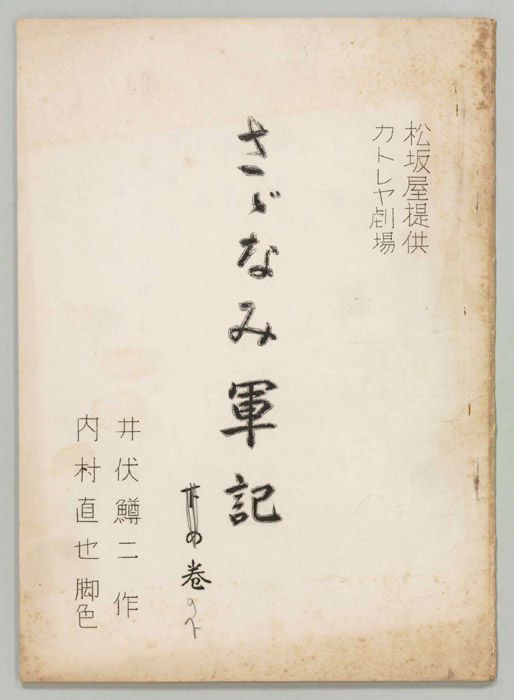 松坂屋提供
カトレヤ劇場
さゞなみ軍記
下の巻
井伏鱒二 作
内村直也 脚色